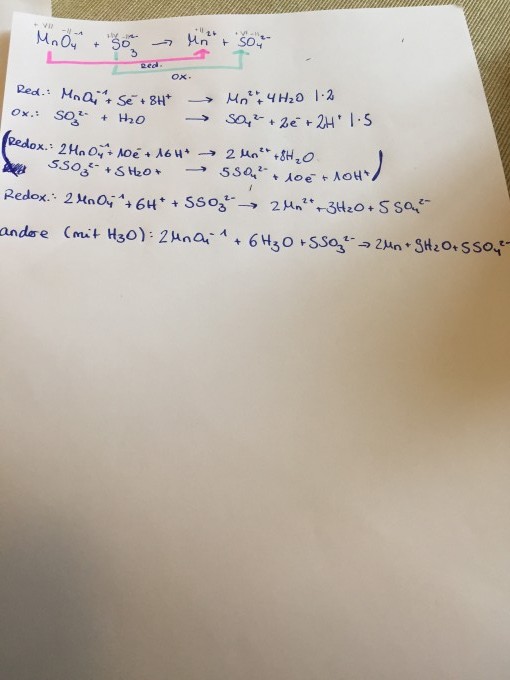 +VII -II -1 +IV -II 2- +II 2+ +VI -II 2-
MnO₄ + SO₃ → Mn + SO₄
Red.
Ox.
Red.: MnO₄⁻¹ + 5e⁻ + 8H⁺ → Mn²⁺ + 4H₂O |·2
Ox.: SO₃²⁻ + H₂O → SO₄²⁻ + 2e⁻ + 2H⁺ |·5
(Redox.: 2MnO₄⁻¹ + 10e⁻ + 16H⁺ → 2Mn²⁺ + 8H₂O
5SO₃²⁻ + 5H₂O → 5SO₄²⁻ + 10e⁻ + 10H⁺)
Redox.: 2MnO₄⁻¹ + 6H⁺ + 5SO₃²⁻ → 2Mn²⁺ + 3H₂O + 5SO₄²⁻
andere (mit H₃O): 2MnO₄⁻¹ + 6H₃O + 5SO₃²⁻ → 2Mn + 9H₂O + 5SO₄²⁻